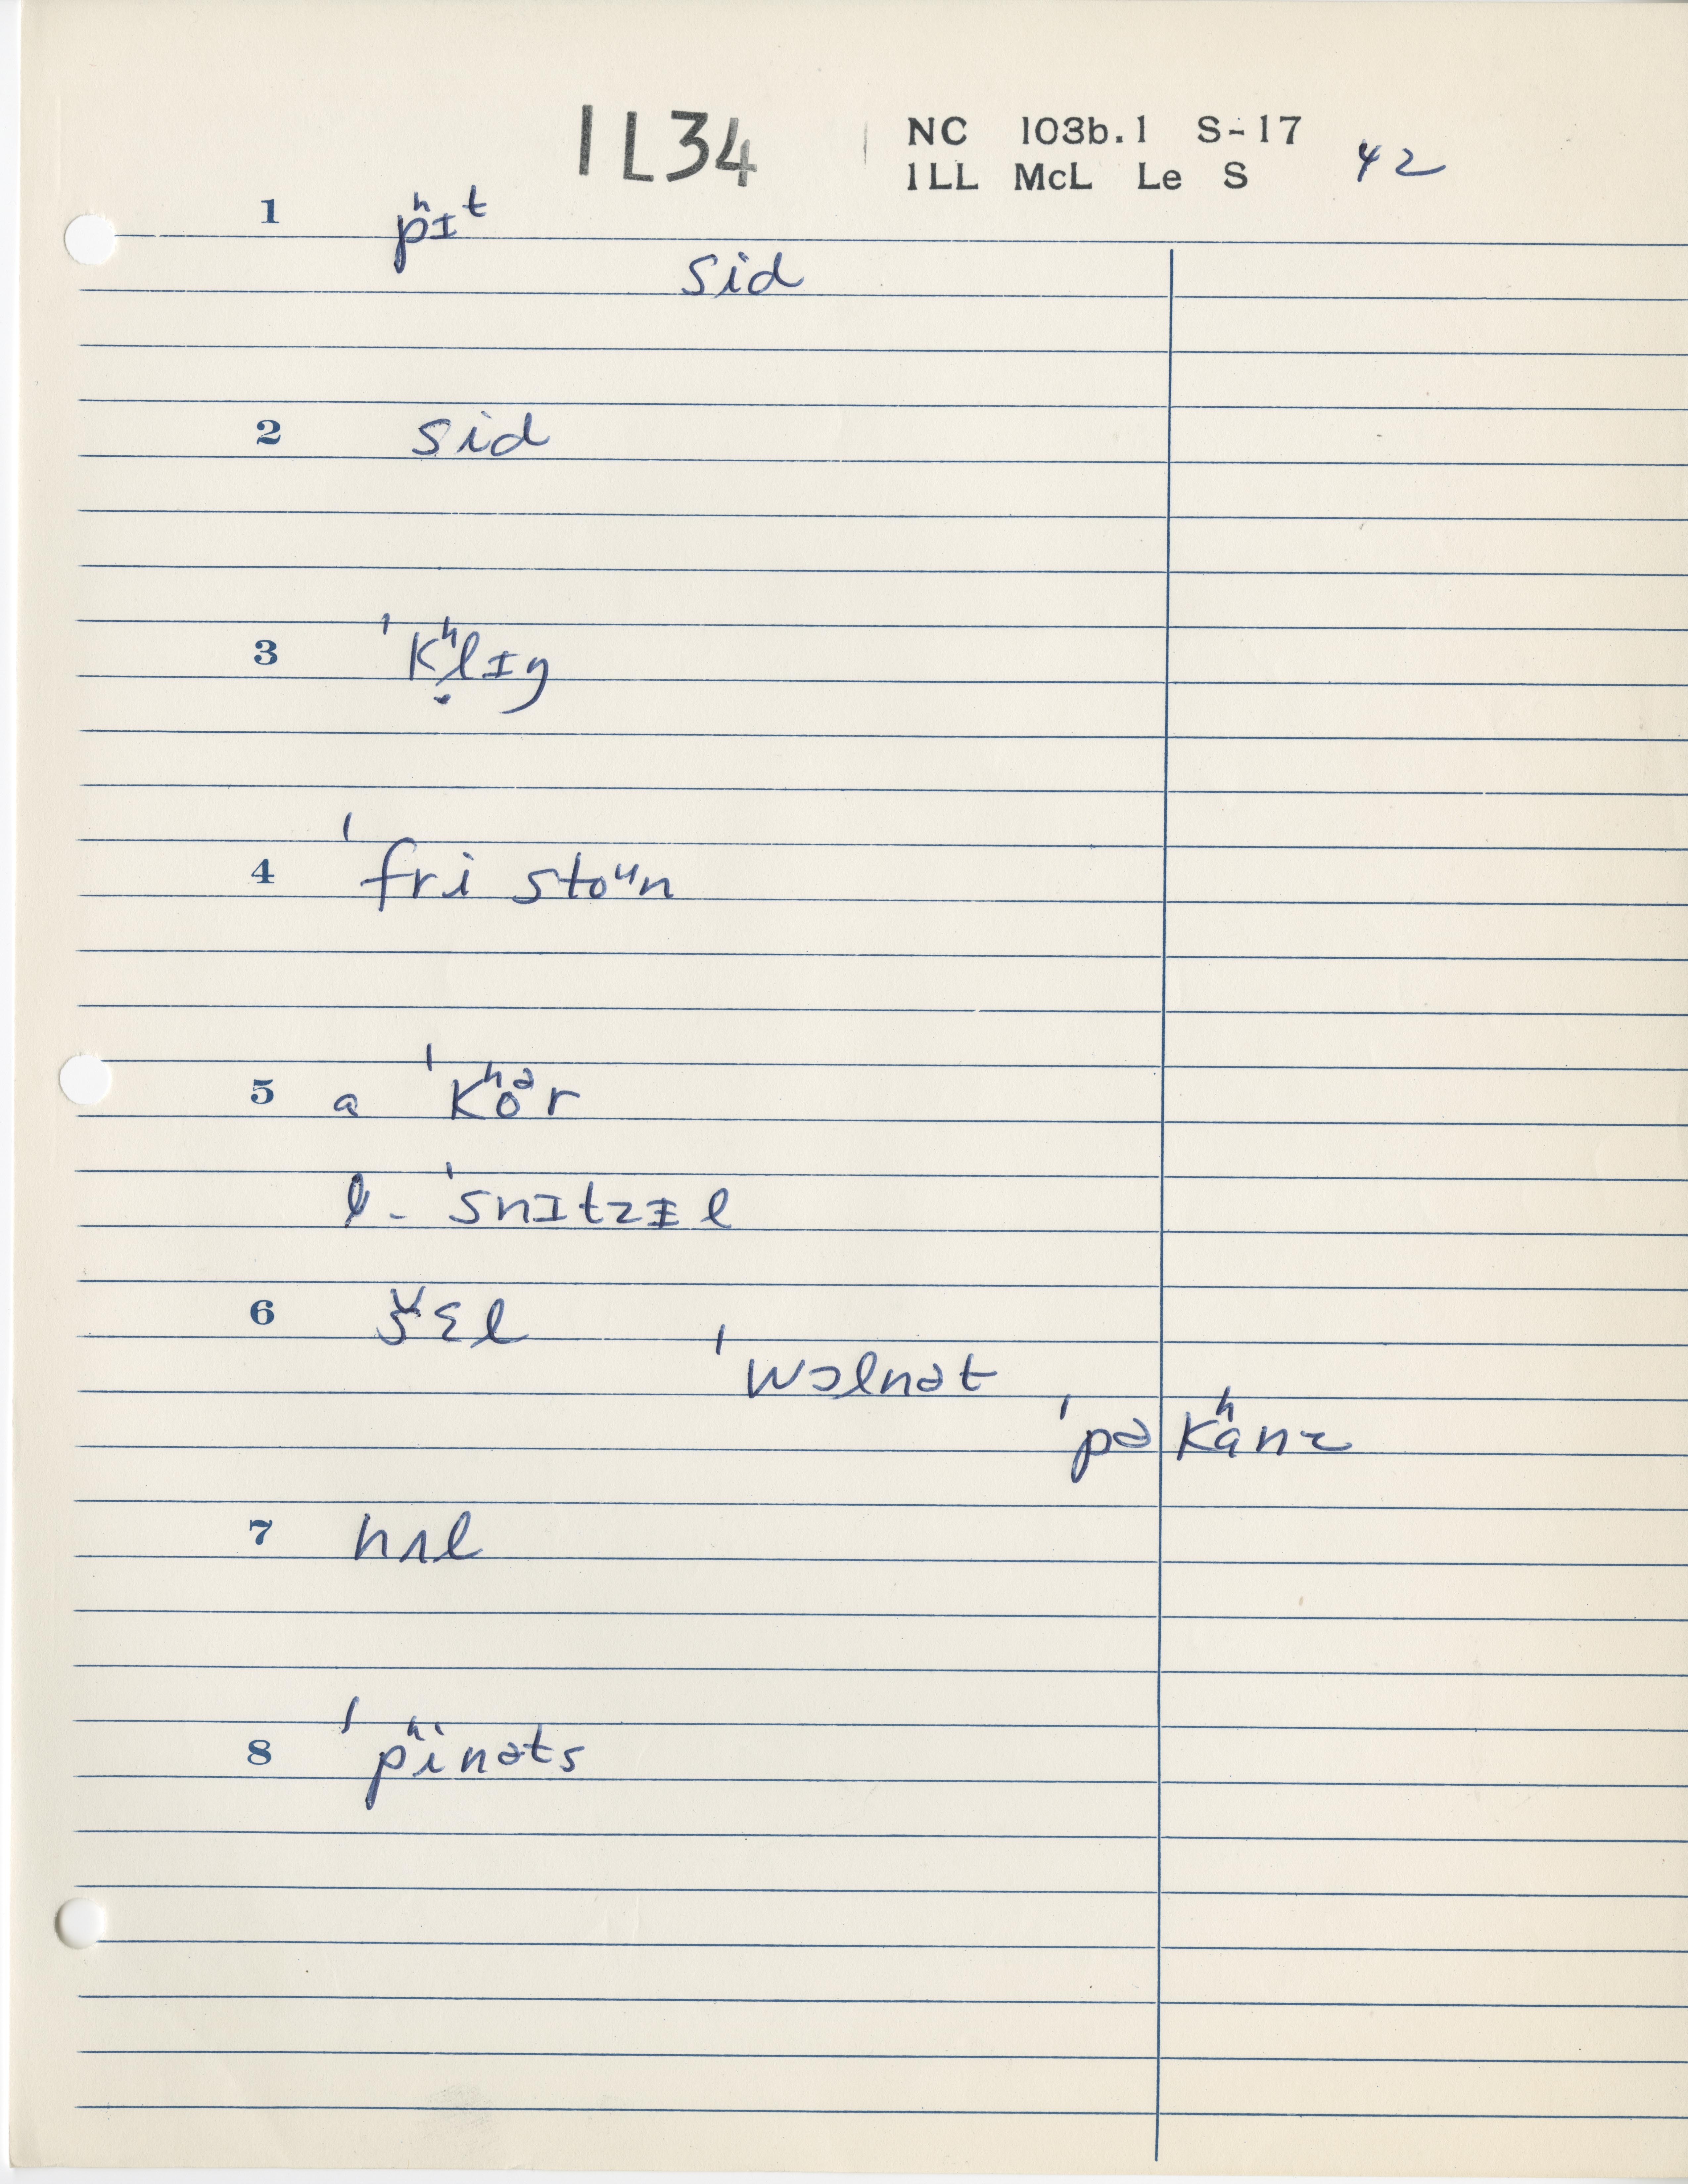 1L34 NC 103b.1 S-17
1LL McL Le S 42
1 pʰɪᵗ
sid
2 sid
3 ˈkʰl̥ɪŋ
4 ˈfri stoᵘn
5 a ˈkʰoᵊr
l- ˈsnɪtzɪ̵l
6 šɛl
ˈwɔlnət
ˈpəkʰanz
7 hʌl
8 ˈpʰinəts